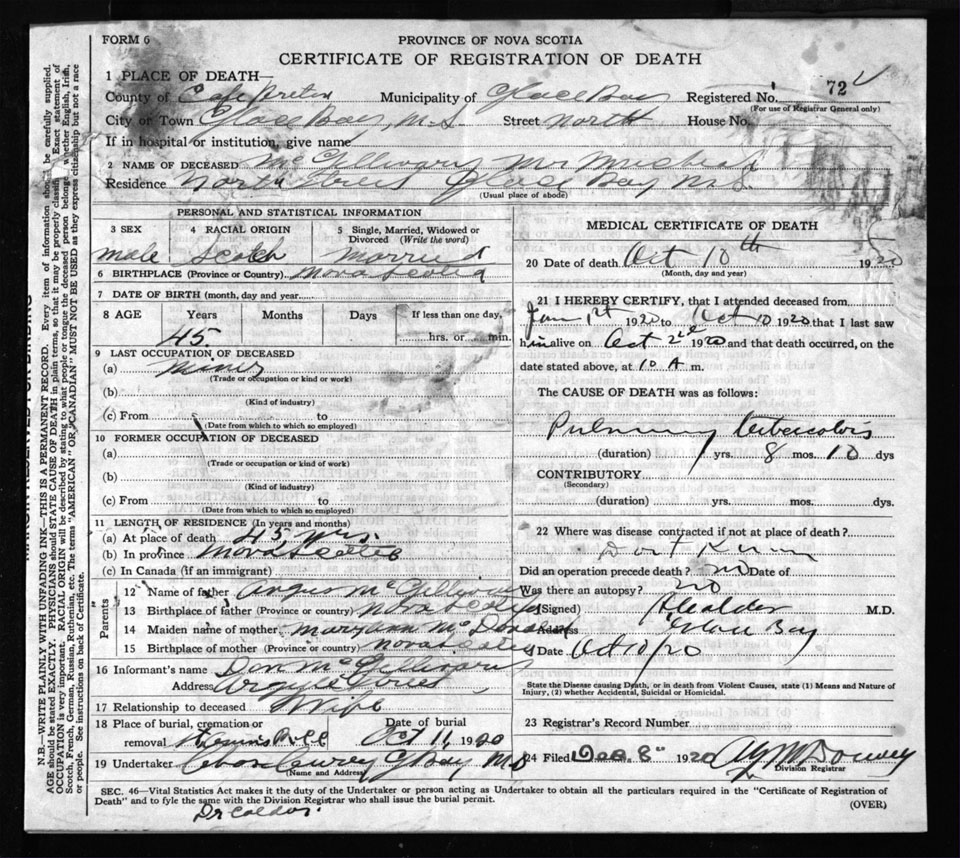 FORM 6
PROVINCE OF NOVA SCOTIA
CERTIFICATE OF REGISTRATION OF DEATH
1 PLACE OF DEATH—
County of Cape Breton Municipality of Glace Bay Registered No. 72
(For use of Registrar General only)
City or Town Glace Bay, N.S Street North House No.
If in hospital or institution, give name
2 NAME OF DECEASED McGillivary Mr Micheal
Residence North Street Glace Bay N.S.
(Usual place of abode)
PERSONAL AND STATISTICAL INFORMATION
3 SEX 4 RACIAL ORIGIN 5 Single, Married, Widowed or
Divorced (Write the word)
male Scotch Married
6 BIRTHPLACE (Province or Country) Nova Scotia
7 DATE OF BIRTH (month, day and year)
8 AGE Years Months Days If less than one day,
45 hrs. or min.
9 LAST OCCUPATION OF DECEASED
(a) Miner
(Trade or occupation or kind or work)
(b)
(Kind of industry)
(c) From to
(Date from which to which so employed)
10 FORMER OCCUPATION OF DECEASED
(a)
(Trade or occupation or kind of work)
(b)
(Kind of industry)
(c) From to
(Date from which to which so employed)
11 LENGTH OF RESIDENCE (In years and months)
(a) At place of death 45 yrs.
(b) In province Nova Scotia
(c) In Canada (if an immigrant)
Parents
12 Name of father Angus McGillivary
13 Birthplace of father (Province or country) Nova Scotia
14 Maiden name of mother Maryann McDonald
15 Birthplace of mother (Province or country) Nova Scotia
16 Informant's name Dan McGillivary
Address Argyle Street
17 Relationship to deceased Wife
18 Place of burial, cremation or Date of burial
removal Oct 11, 1920
19 Undertaker G Bay N.S
(Name and Address)
MEDICAL CERTIFICATE OF DEATH
20 Date of death Oct 10th 1920
(Month, day and year)
21 I HEREBY CERTIFY, that I attended deceased from
Jan 1st 1920 to Oct 10 1920 that I last saw
him alive on Oct 2nd 1920 and that death occurred, on the
date stated above, at 10 A m.
The CAUSE OF DEATH was as follows:
Pulmonary tubercolosis
(duration) yrs. 8 mos. 10 dys
CONTRIBUTORY
(Secondary)
(duration) yrs. mos. dys.
22 Where was disease contracted if not at place of death?
Don't Know
Did an operation precede death? no Date of
Was there an autopsy? no
(Signed) M.D.
Address Glace Bay
Date Oct 10/20
State the Disease causing Death, or in death from Violent Causes, state (1) Means and Nature of
Injury, (2) whether Accidental, Suicidal or Homicidal.
23 Registrar's Record Number
24 Filed Dec. 8" 1920
Division Registrar
SEC. 46—Vital Statistics Act makes it the duty of the Undertaker or person acting as Undertaker to obtain all the particulars required in the "Certificate of Registration of
Death" and to fyle the same with the Division Registrar who shall issue the burial permit. (OVER)
Dr Caldor.
N.B.—WRITE PLAINLY WITH UNFADING INK—THIS IS A PERMANENT RECORD. Every item of information should be carefully supplied.
AGE should be stated EXACTLY. PHYSICIANS should STATE CAUSE OF DEATH in plain terms, so that it may be properly classified. Exact statement of
OCCUPATION is very important. RACIAL ORIGIN will be described by stating to what people or tongue the deceased person belongs, whether English, Irish,
Scotch, French, German, Russian, Ruthenian, etc. The terms "AMERICAN" OR "CANADIAN" MUST NOT BE USED as they express citizenship but not a race
or people. See instructions on back of Certificate.